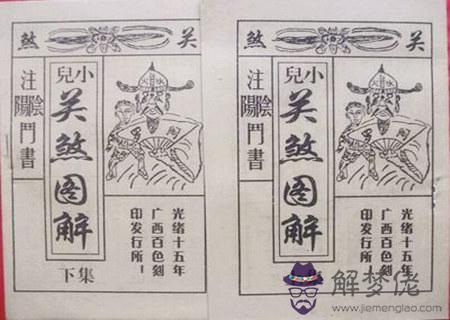 关煞
小兒
关煞图解
下集
注陰陽鬥書
光绪十五年
广西百色刻
印发行所!
关煞
小兒
关煞图解
注陰陽鬥書
光绪十五年
广西百色刻
印发行所
解梦佬
www.jiemenglao.com